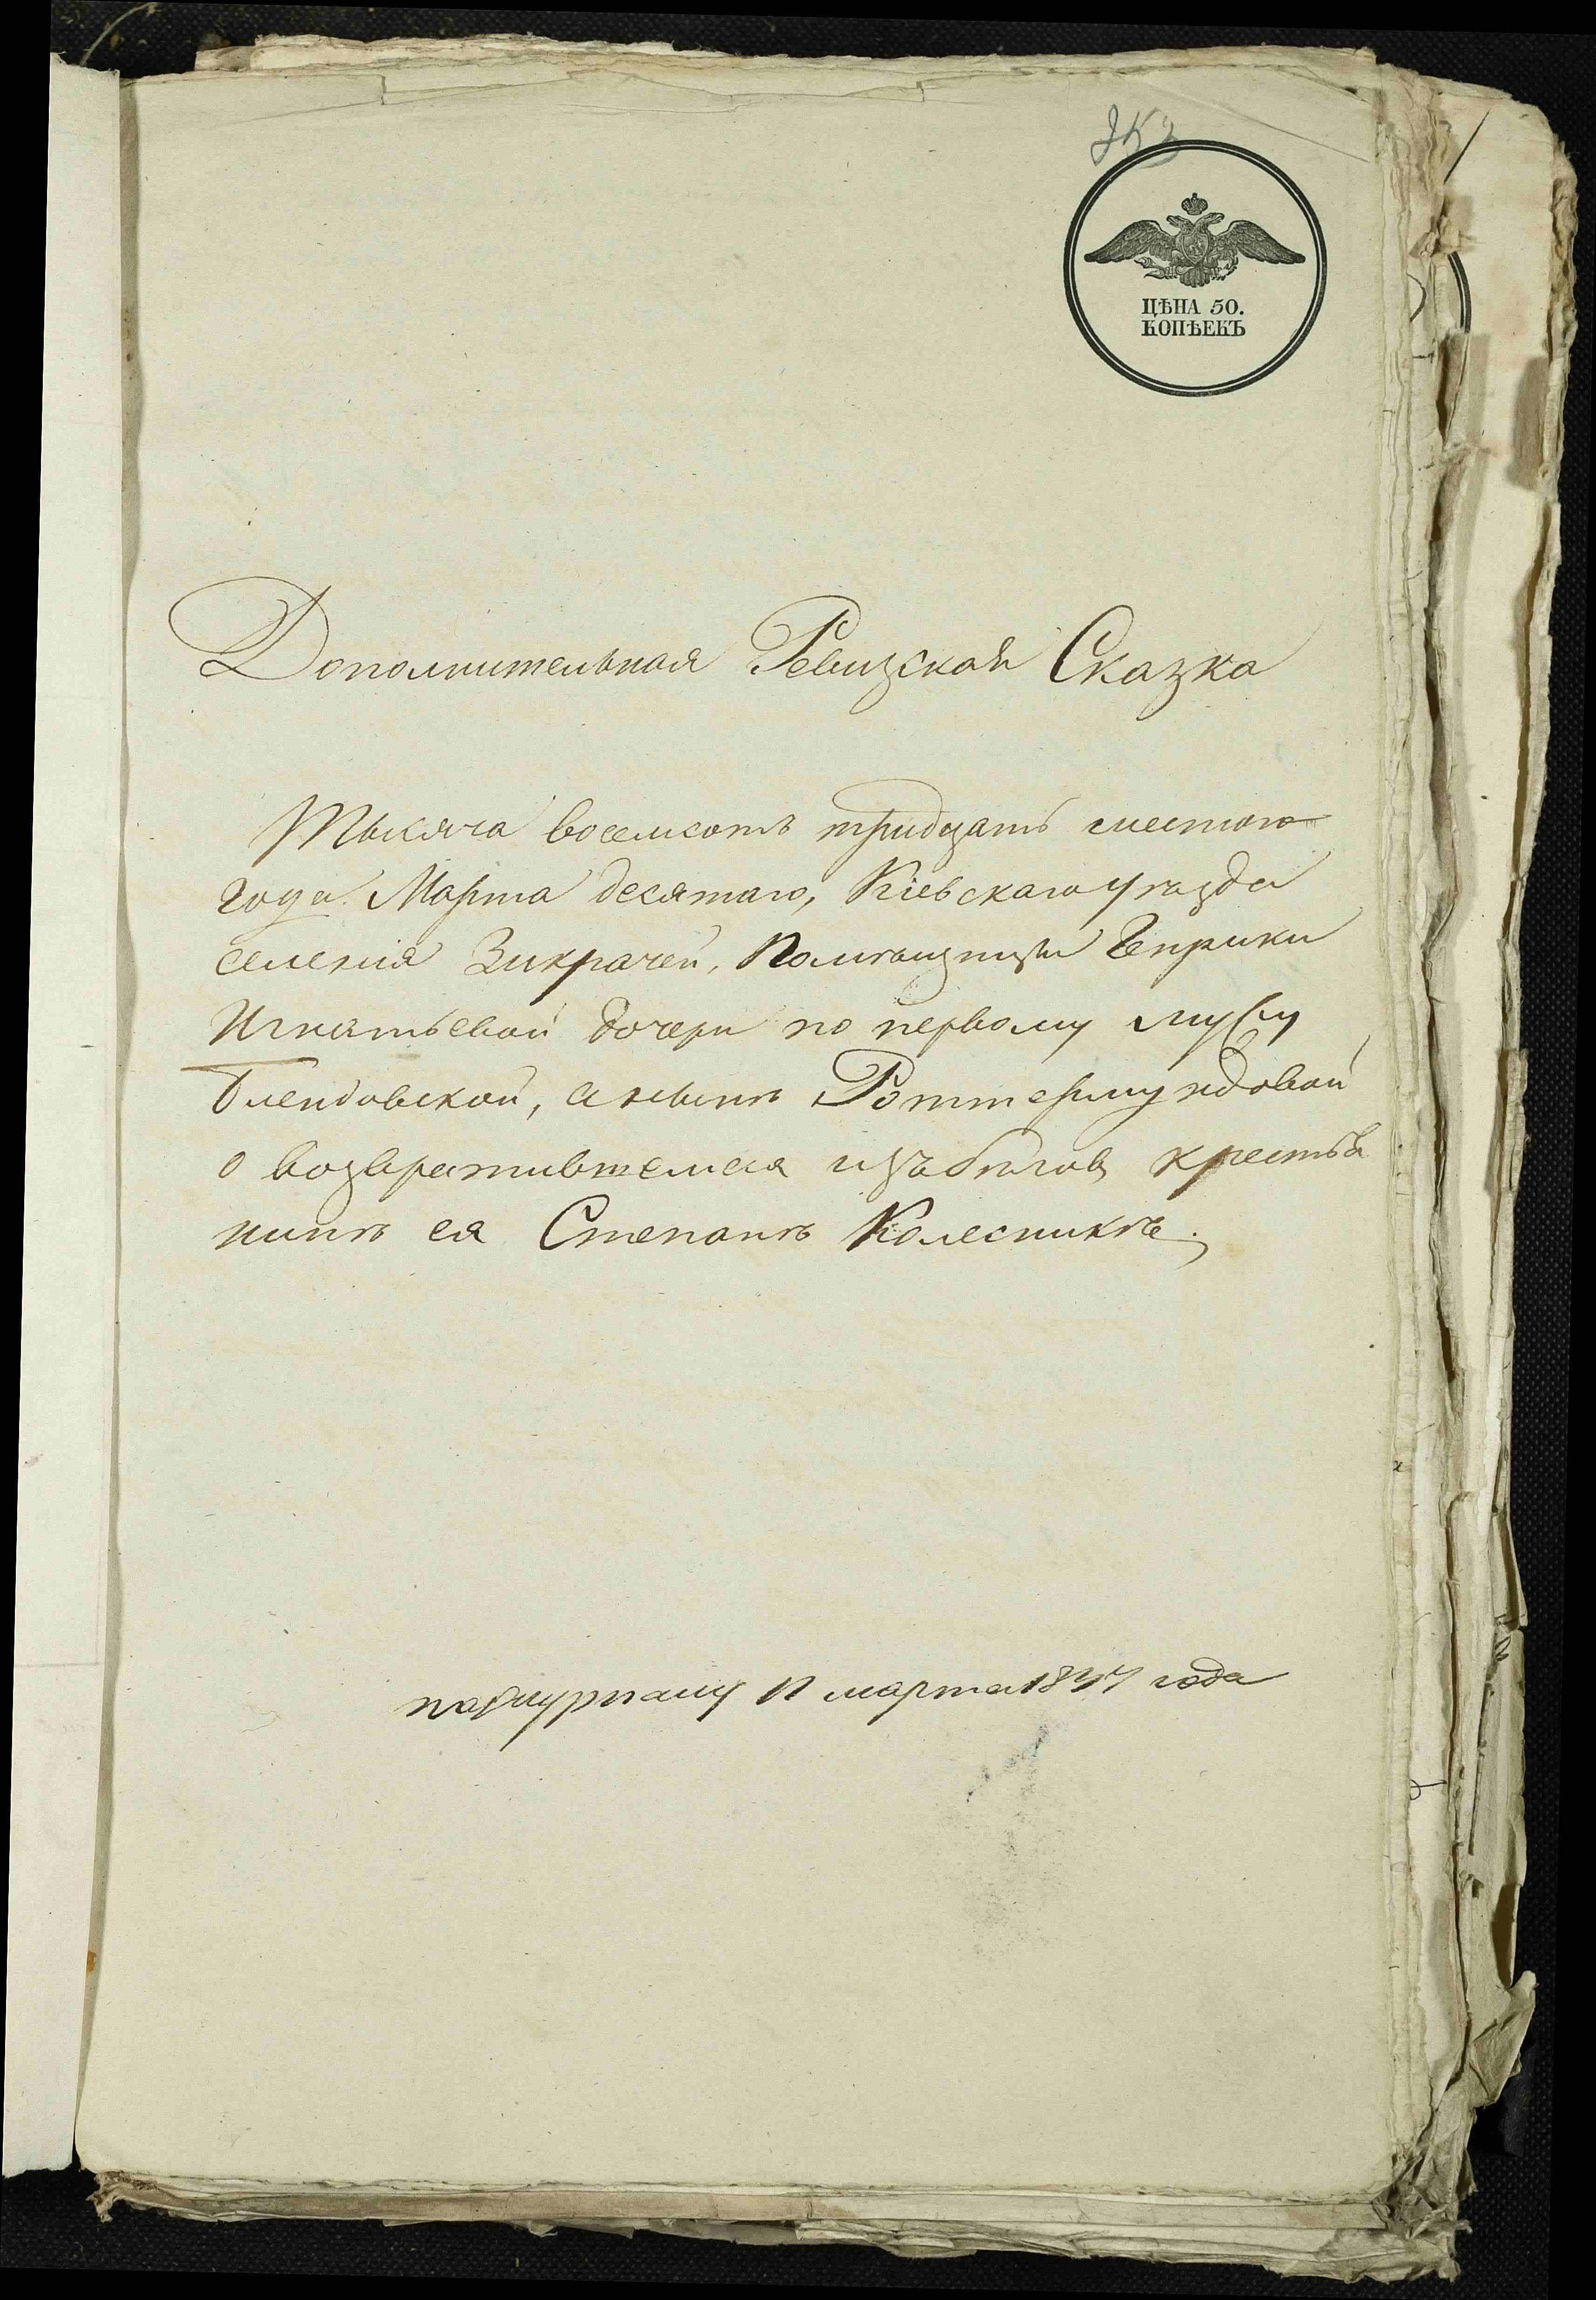 ЦѢНА 50.
КОПѢЕКЪ
Дополнительная Ревизская Сказка
Тысяча восемсотъ тридцать шестого
года Марта десятаго, Кіевскаго уѣзда
селенія Викрачей, Помѣщицы Генрики
Игнатьевой дочери по первому мужу
Блендовской, а нынѣ Роттермундовой
о возвратившемся изъ бѣговъ крестья
нинѣ ея Степанѣ Колесникѣ.
по журналу 11 марта 1837 года